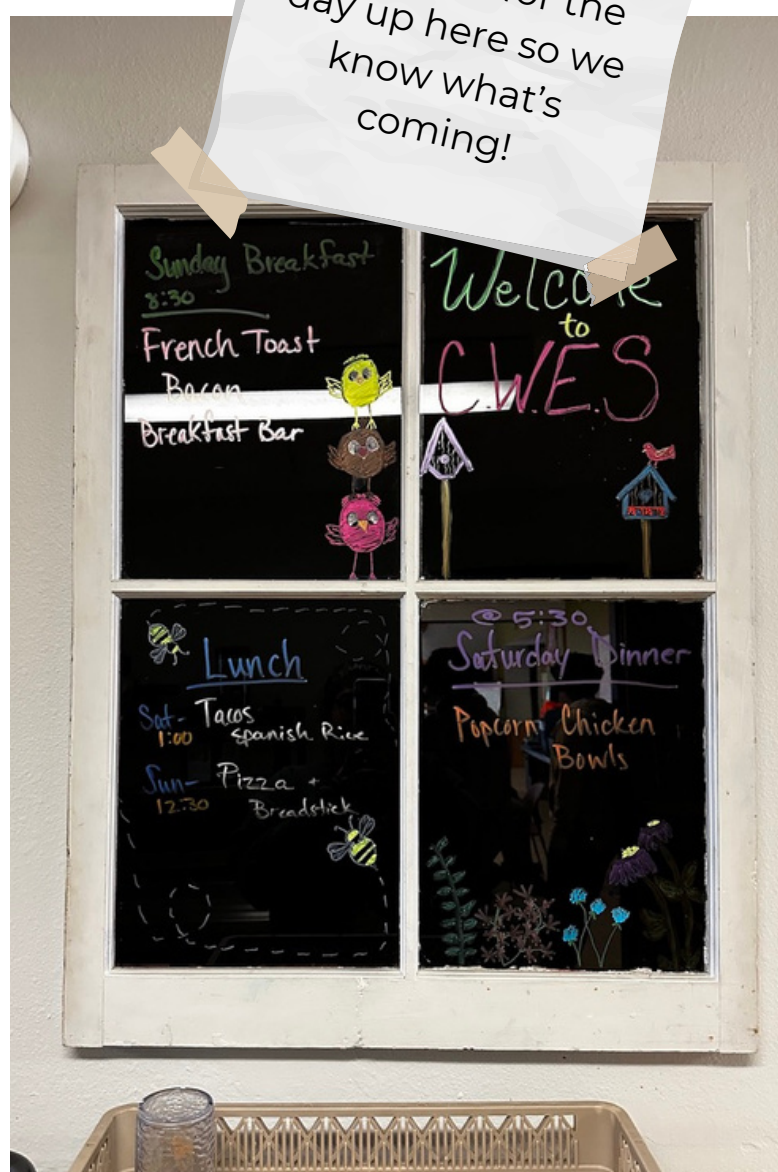 for the
day up here so we
know what's
coming!
Sunday Breakfast
8:30
French Toast
Bacon
Breakfast Bar
Welcome
to
C.W.E.S
Lunch
Sat- Tacos
1:00 Spanish Rice
Sun- Pizza +
12:30 Breadstick
@ 5:30
Saturday Dinner
Popcorn Chicken
Bowls